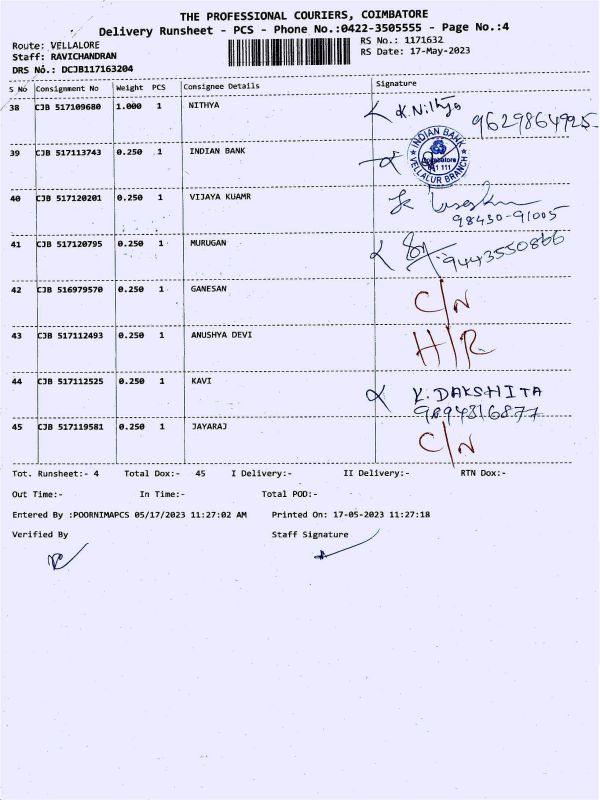 THE PROFESSIONAL COURIERS, COIMBATORE
Delivery Runsheet - PCS - Phone No.:0422-3505555 - Page No.:4
Route: VELLALORE
RS No.: 1171632
Staff: RAVICHANDRAN
RS Date: 17-May-2023
DRS No.: DCJB117163204
S No Consignment No Weight PCS Consignee Details Signature
38 CJB 517109680 1.000 1 NITHYA K.Nithya 9629864925
39 CJB 517113743 0.250 1 INDIAN BANK INDIAN BANK Coimbatore 641 111 VELLALUR BRANCH
40 CJB 517120201 0.250 1 VIJAYA KUAMR
98430-91005
41 CJB 517120795 0.250 1 MURUGAN 9443550866
42 CJB 516979570 0.250 1 GANESAN C/N
43 CJB 517112493 0.250 1 ANUSHYA DEVI H/R
44 CJB 517112525 0.250 1 KAVI K. DAKSHITA
9894316877
45 CJB 517119581 0.250 1 JAYARAJ C/N
Tot. Runsheet:- 4 Total Dox:- 45 I Delivery:- II Delivery:- RTN Dox:-
Out Time:- In Time:- Total POD:-
Entered By :POORNIMAPCS 05/17/2023 11:27:02 AM Printed On: 17-05-2023 11:27:18
Verified By Staff Signature